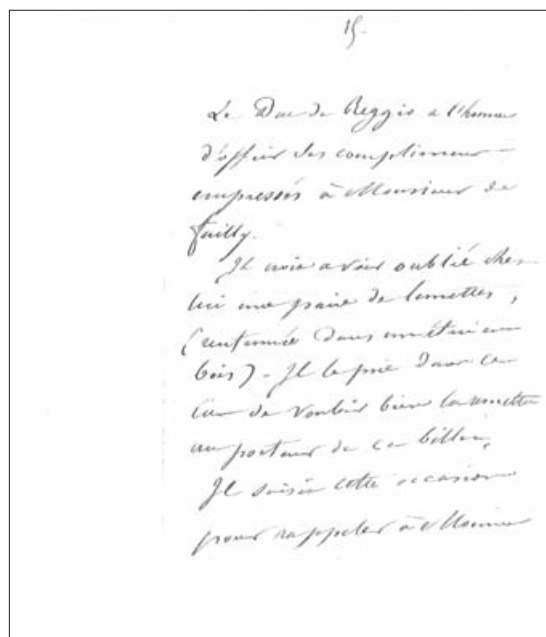 15.
Le Duc de Reggio a l'honneur
d'offrir ses compliments
empressés à Monsieur de
Failly.
Il croit avoir oublié chez
lui une paire de lunettes,
(renfermée dans un étui en
bois). Il le prie dans ce
cas de vouloir bien la remettre
au porteur de ce billet,
Il saisit cette occasion
pour rappeler à Monsieur